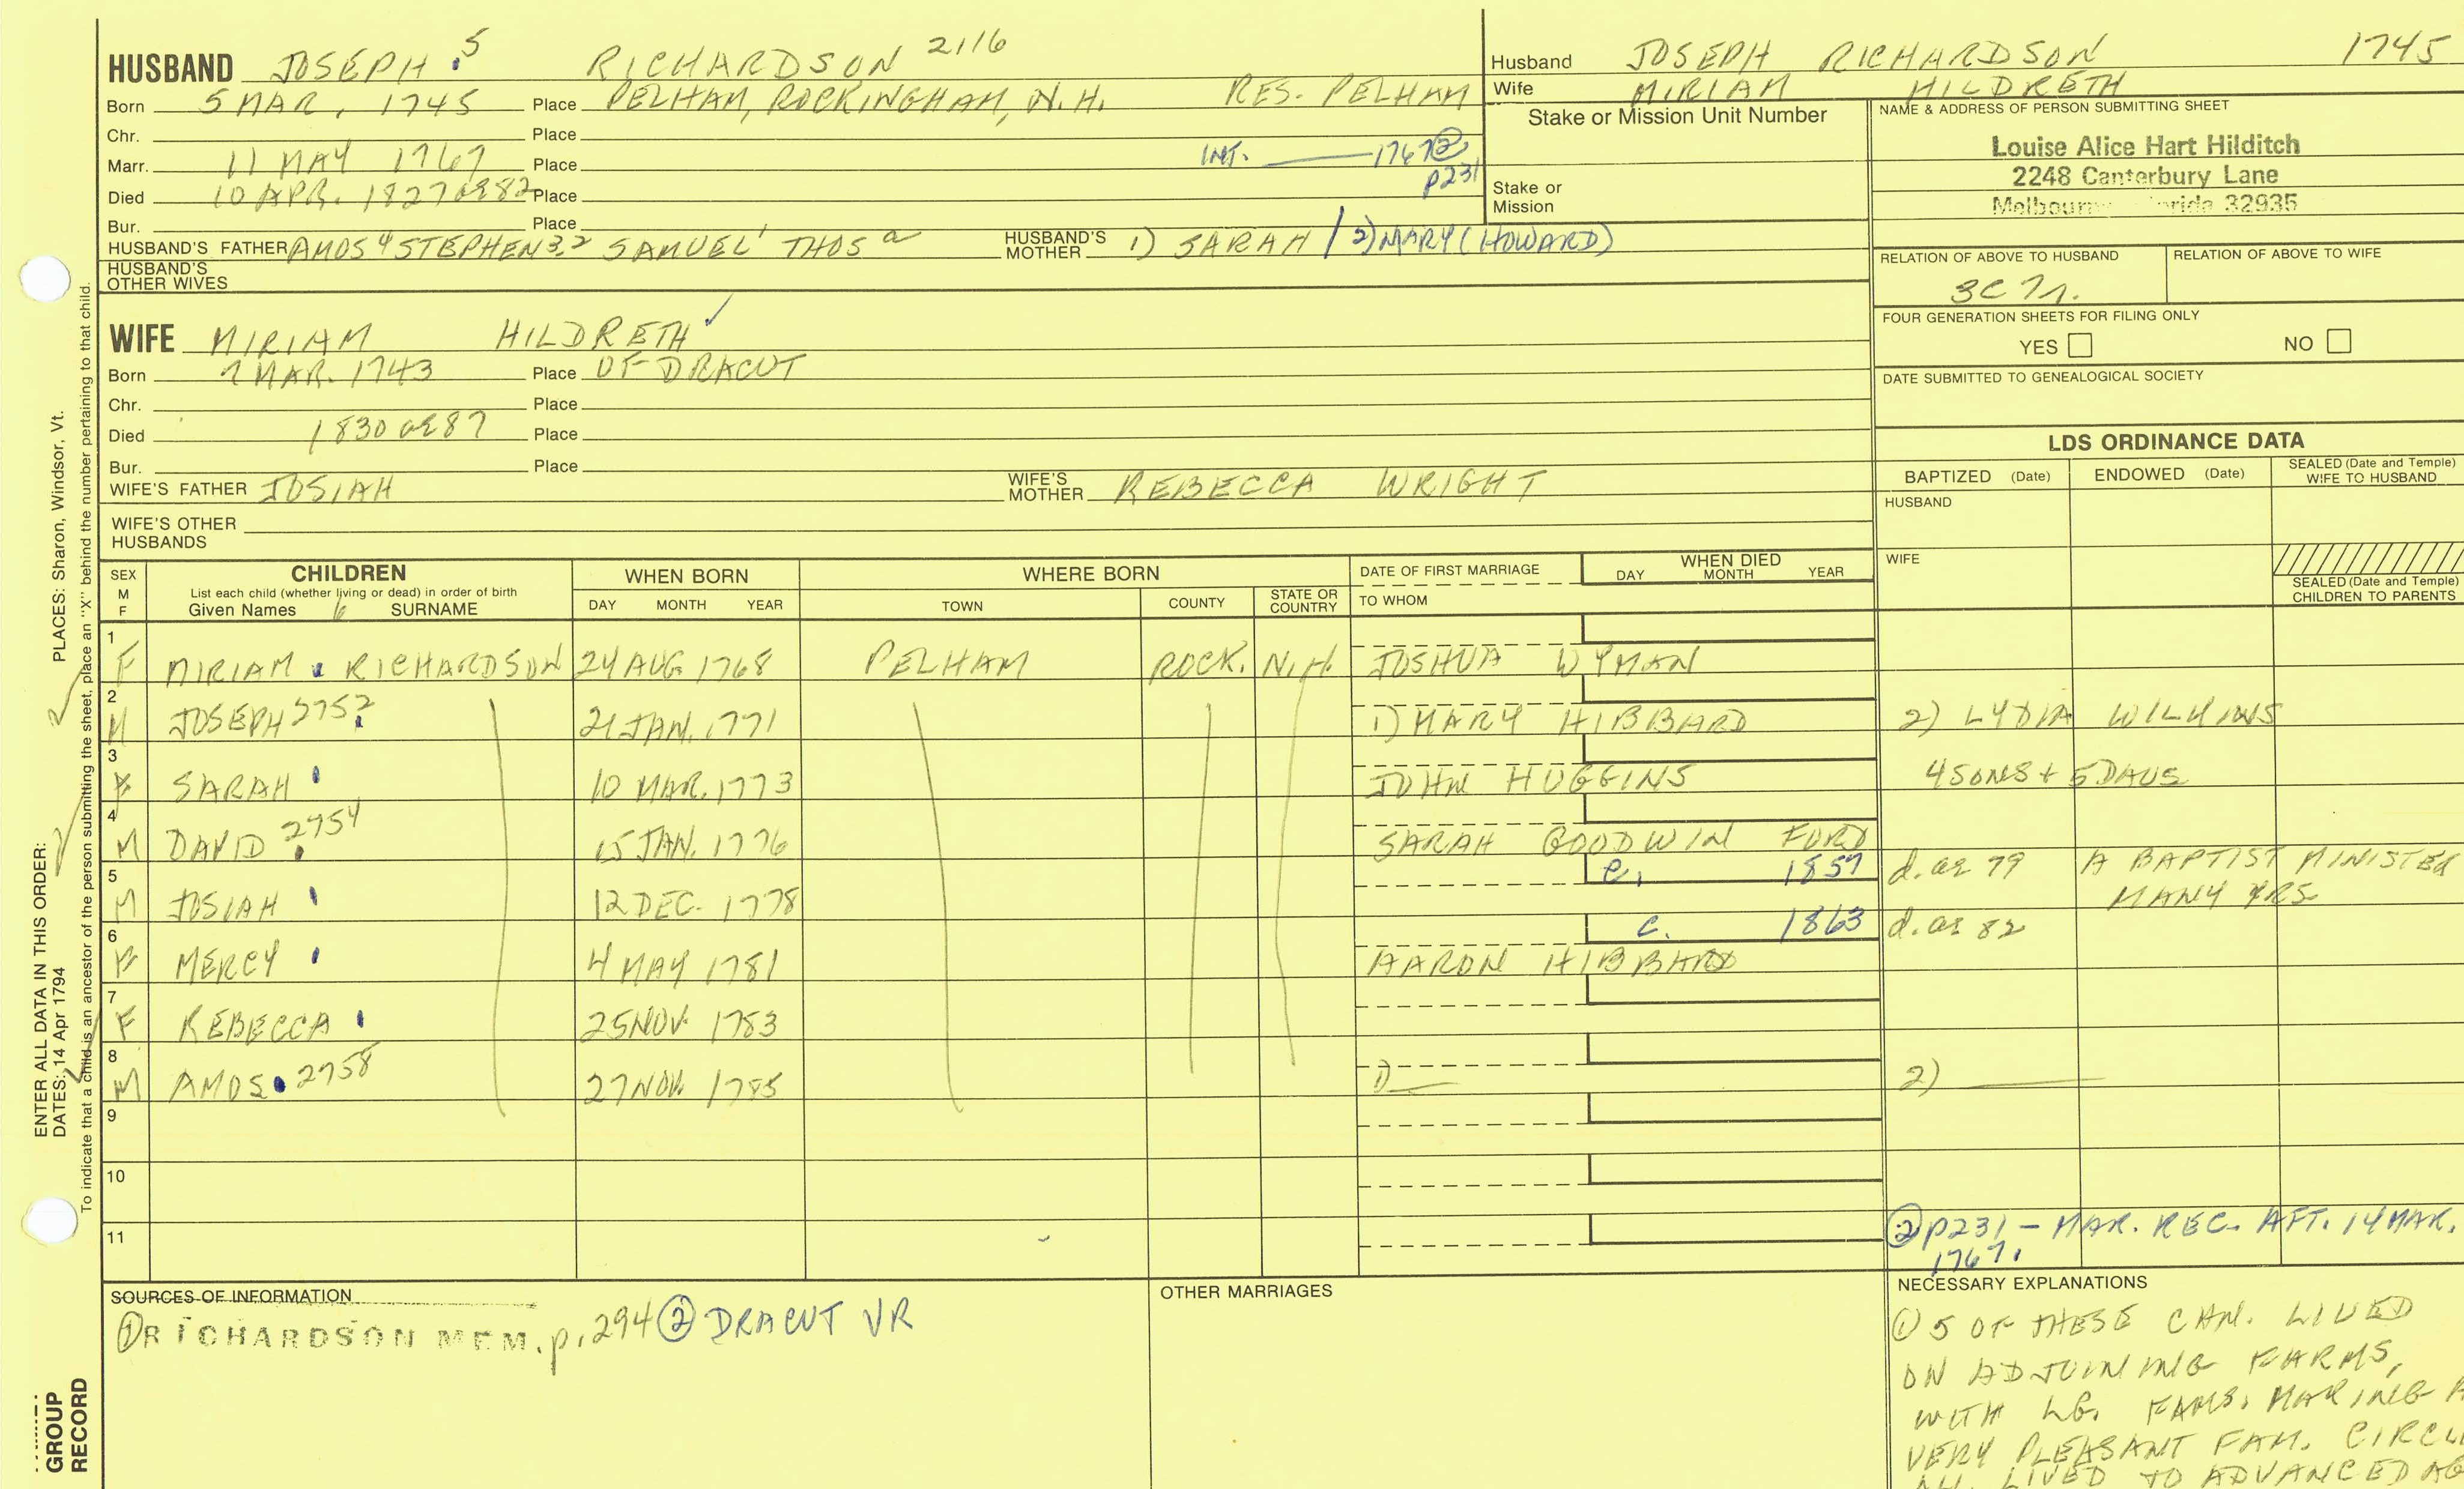 HUSBAND JOSEPH 5 RICHARDSON 2116
Born 5 MAR, 1745 Place PELHAM, ROCKINGHAM, N.H. RES. PELHAM
Chr. Place
Marr. 11 MAY 1767 Place INT. 1767 ②
p231
Died 10 APR. 1827 ae 82 Place
Bur. Place
HUSBAND'S FATHER AMOS 4 STEPHEN 3,2 SAMUEL 1 THOS a HUSBAND'S MOTHER 1) SARAH / 2) MARY (HOWARD)
HUSBAND'S OTHER WIVES
Husband JOSEPH RICHARDSON 1745
Wife MIRIAM HILDRETH
Stake or Mission Unit Number
Stake or Mission
NAME & ADDRESS OF PERSON SUBMITTING SHEET
Louise Alice Hart Hilditch
2248 Canterbury Lane
Melbourne Florida 32935
RELATION OF ABOVE TO HUSBAND RELATION OF ABOVE TO WIFE
3C
FOUR GENERATION SHEETS FOR FILING ONLY
YES NO
DATE SUBMITTED TO GENEALOGICAL SOCIETY
WIFE MIRIAM HILDRETH ✓
Born 7 MAR. 1743 Place OF DRACUT
Chr. Place
Died 1830 ae 87 Place
Bur. Place
WIFE'S FATHER JOSIAH WIFE'S MOTHER REBECCA WRIGHT
WIFE'S OTHER HUSBANDS
LDS ORDINANCE DATA
BAPTIZED (Date) ENDOWED (Date) SEALED (Date and Temple) WIFE TO HUSBAND
HUSBAND
WIFE
SEALED (Date and Temple) CHILDREN TO PARENTS
SEX M F
CHILDREN
List each child (whether living or dead) in order of birth
Given Names 6 SURNAME
WHEN BORN
DAY MONTH YEAR
WHERE BORN
TOWN COUNTY STATE OR COUNTRY
DATE OF FIRST MARRIAGE
TO WHOM
WHEN DIED
DAY MONTH YEAR
1 F MIRIAM RICHARDSON 24 AUG. 1768 PELHAM ROCK. N.H. JOSHUA WYMAN
2 M JOSEPH 2752 21 JAN. 1771 1) MARY HIBBARD 2) LYDIA WILKINS
3 F SARAH 10 MAR. 1773 JOHN HUGGINS 4 SONS + 5 DAUS
4 M DAVID 2754 15 JAN. 1776 SARAH GOODWIN FORD
5 M JOSIAH 12 DEC. 1778 c. 1857 d. ae 79 A BAPTIST MINISTER
MANY YRS
6 F MERCY 4 MAY 1781 AARON HIBBARD c. 1863 d. ae 82
7 F REBECCA 25 NOV. 1783
8 M AMOS 2758 27 NOV. 1785 1) 2)
9
10
11
② p231 - MAR. REC. AFT. 14 MAR.
1767.
SOURCES OF INFORMATION
① RICHARDSON MEM. p. 294 ② DRACUT VR
OTHER MARRIAGES
NECESSARY EXPLANATIONS
① 5 OF THESE CHN. LIVED
ON ADJOINING FARMS,
WITH LG. FAMS. MAKING A
VERY PLEASANT FAM. CIRCL
ALL LIVED TO ADVANCED AG
PLACES: Sharon, Windsor, Vt.
ENTER ALL DATA IN THIS ORDER:
DATES: 14 Apr 1794
To indicate that a child is an ancestor of the person submitting the sheet, place an "X" behind the number pertaining to that child.
GROUP
RECORD